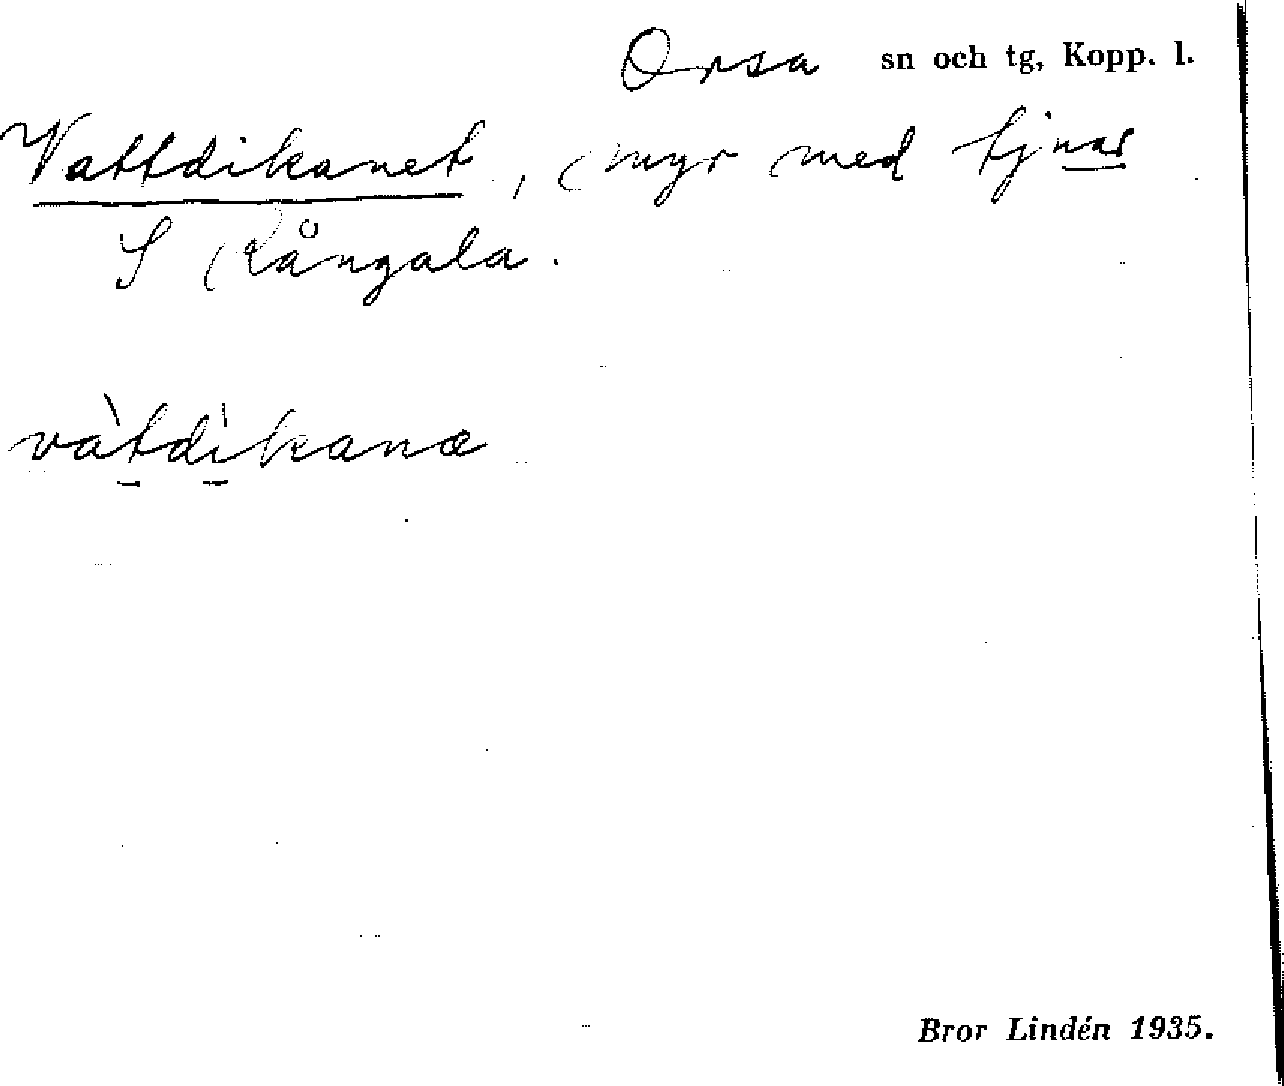 Orsa sn och tg, Kopp. l.
Vattdikanet, myr med tjnar
S Rångala.
våtdìkanæ
Bror Lindén 1935.